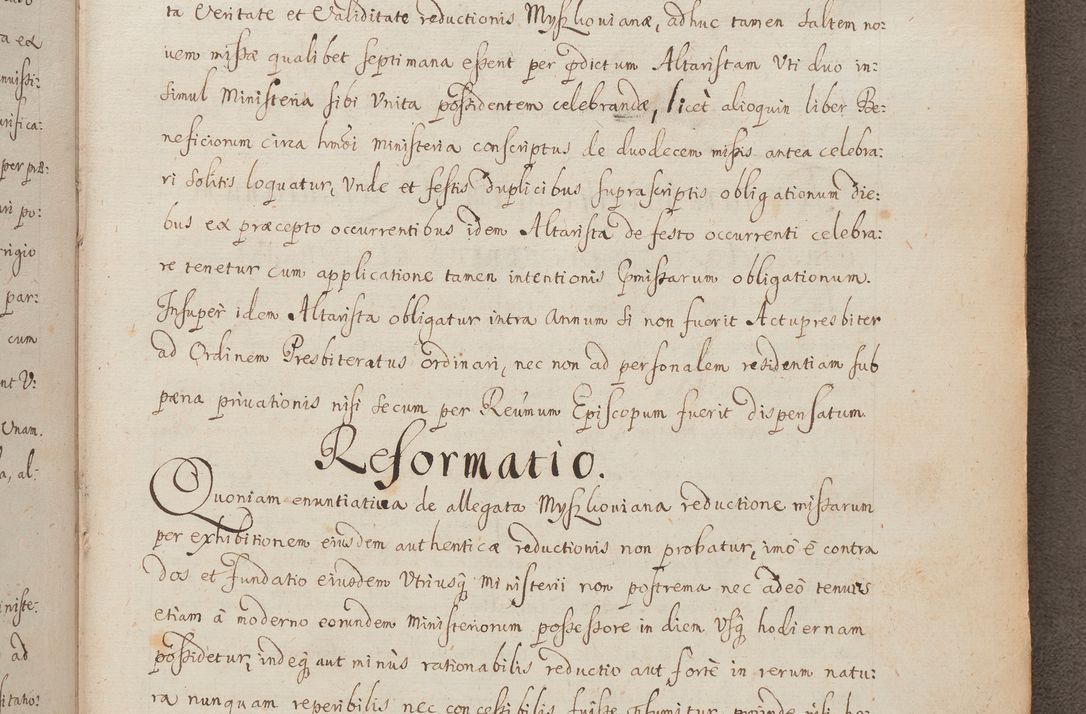 ta Veritate et Validitate reductionis Myszkovianæ, adhuc tamen saltem no:
vem missæ qualibet septimana essent per pdictum Altaristam Uti duo in:
simul Ministeria sibi Unita possidentem celebrandæ, licèt alioquin liber Be:
neficiorum circa hmõi ministeria conscriptus de duodecem missis antea celebra:
ri solitis loquatur, Unde et festis duplicibus suprascriptis obligationum die:
bus ex præcepto occurrentibus idem Altarista de festo occurrenti celebra:
re tenetur cum applicatione tamen intentionis pmissarum obligationum.
Insupèr idem Altarista obligatur intra Annum si non fuerit Actupresbiter
ad Ordinem Presbiteratus ordinari, nec non ad personalem residentiam sub
pæna privationis nisi secum per Reũmum Episcopum fuerit dispensatum.
Reformatio.
Quoniam enuntiativa de allegata Myszkoviana reductione missarum
per exhibitionem eiusdem authenticæ reductionis non probatur, imò ẽ contra
dos et Fundatio eiusdem Utriusq̃ Ministerii non postrema nec adeò tenuis
etiam à moderno eorundem Ministeriorum possessore in diem Usq̃ hodiernam
possidetur, indeq̃ aut minùs rationabilis reductio aut fortè in rerum natu:
ra nunquam reperibilis nec concessibilis fuisse